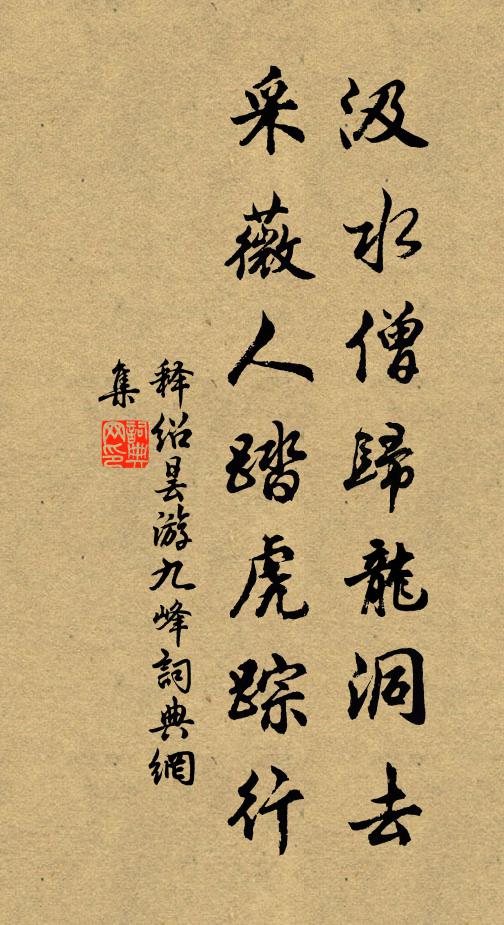 汲水僧歸龍洞去
采薇人踏虎踪行
释绍昙游九峰詞典網
集
詞典网印